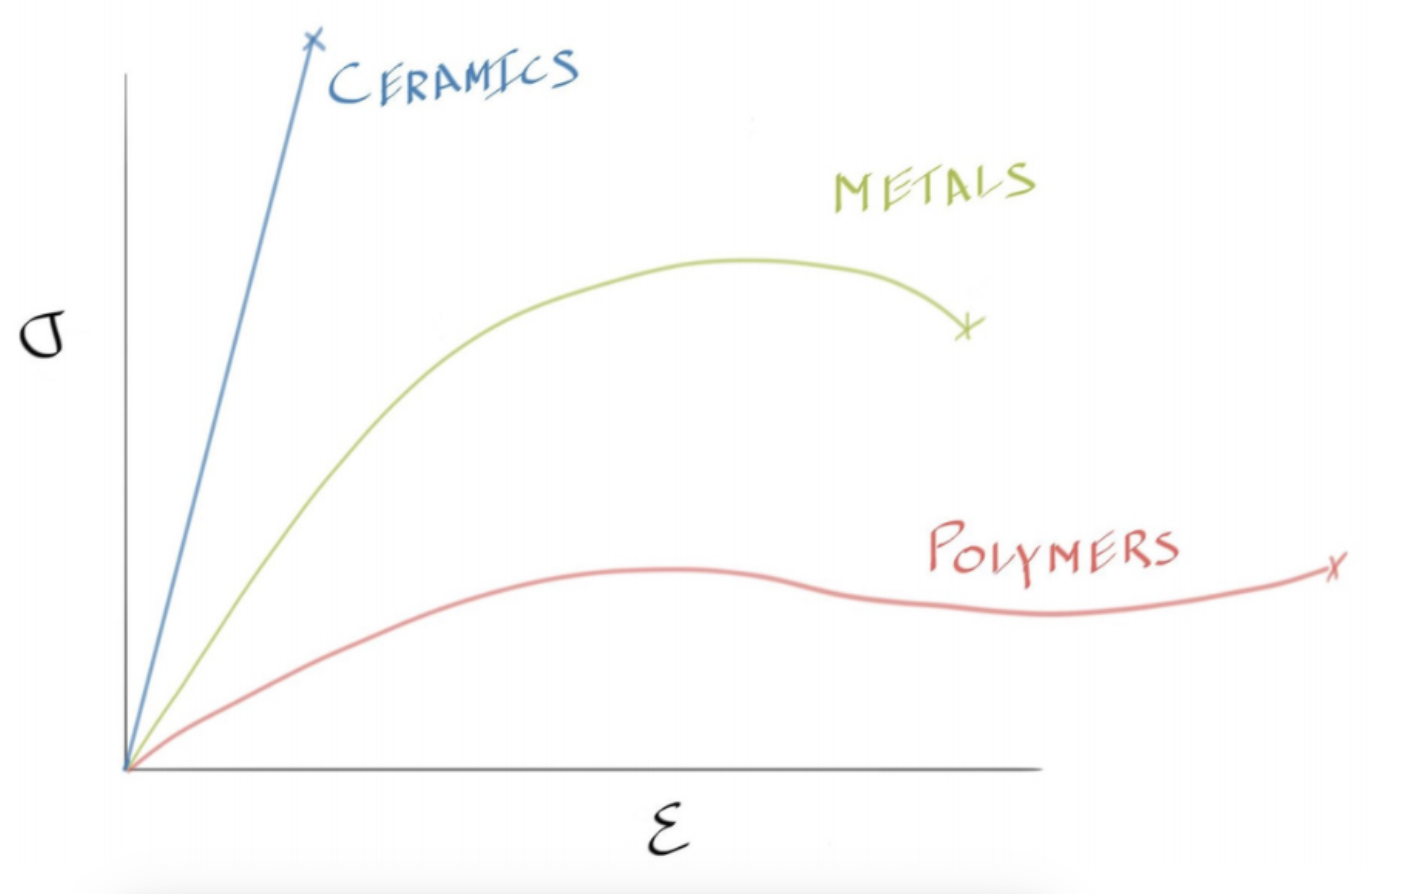 CERAMICS
METALS
σ
POLYMERS
ε